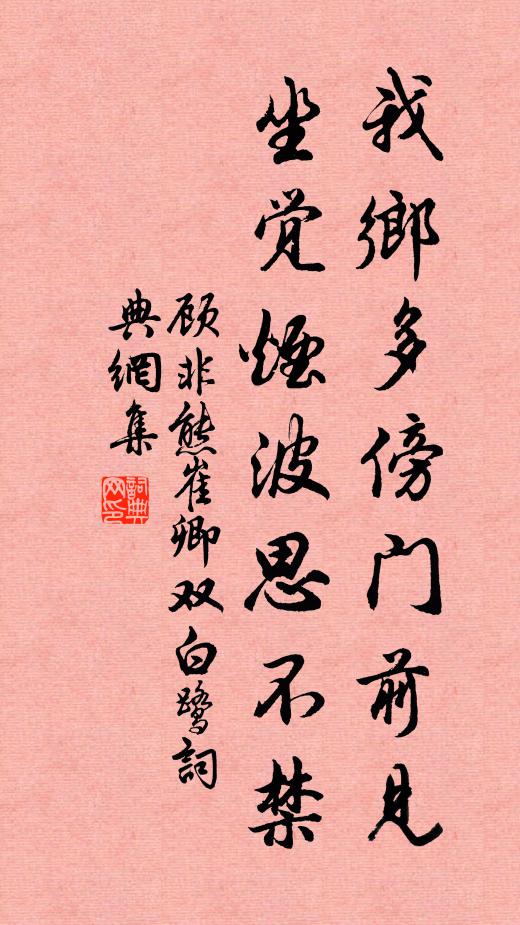 我鄉多傍门前見
坐觉煙波思不禁
顾非熊崔卿双白鹭詞
典網集
詞典网印